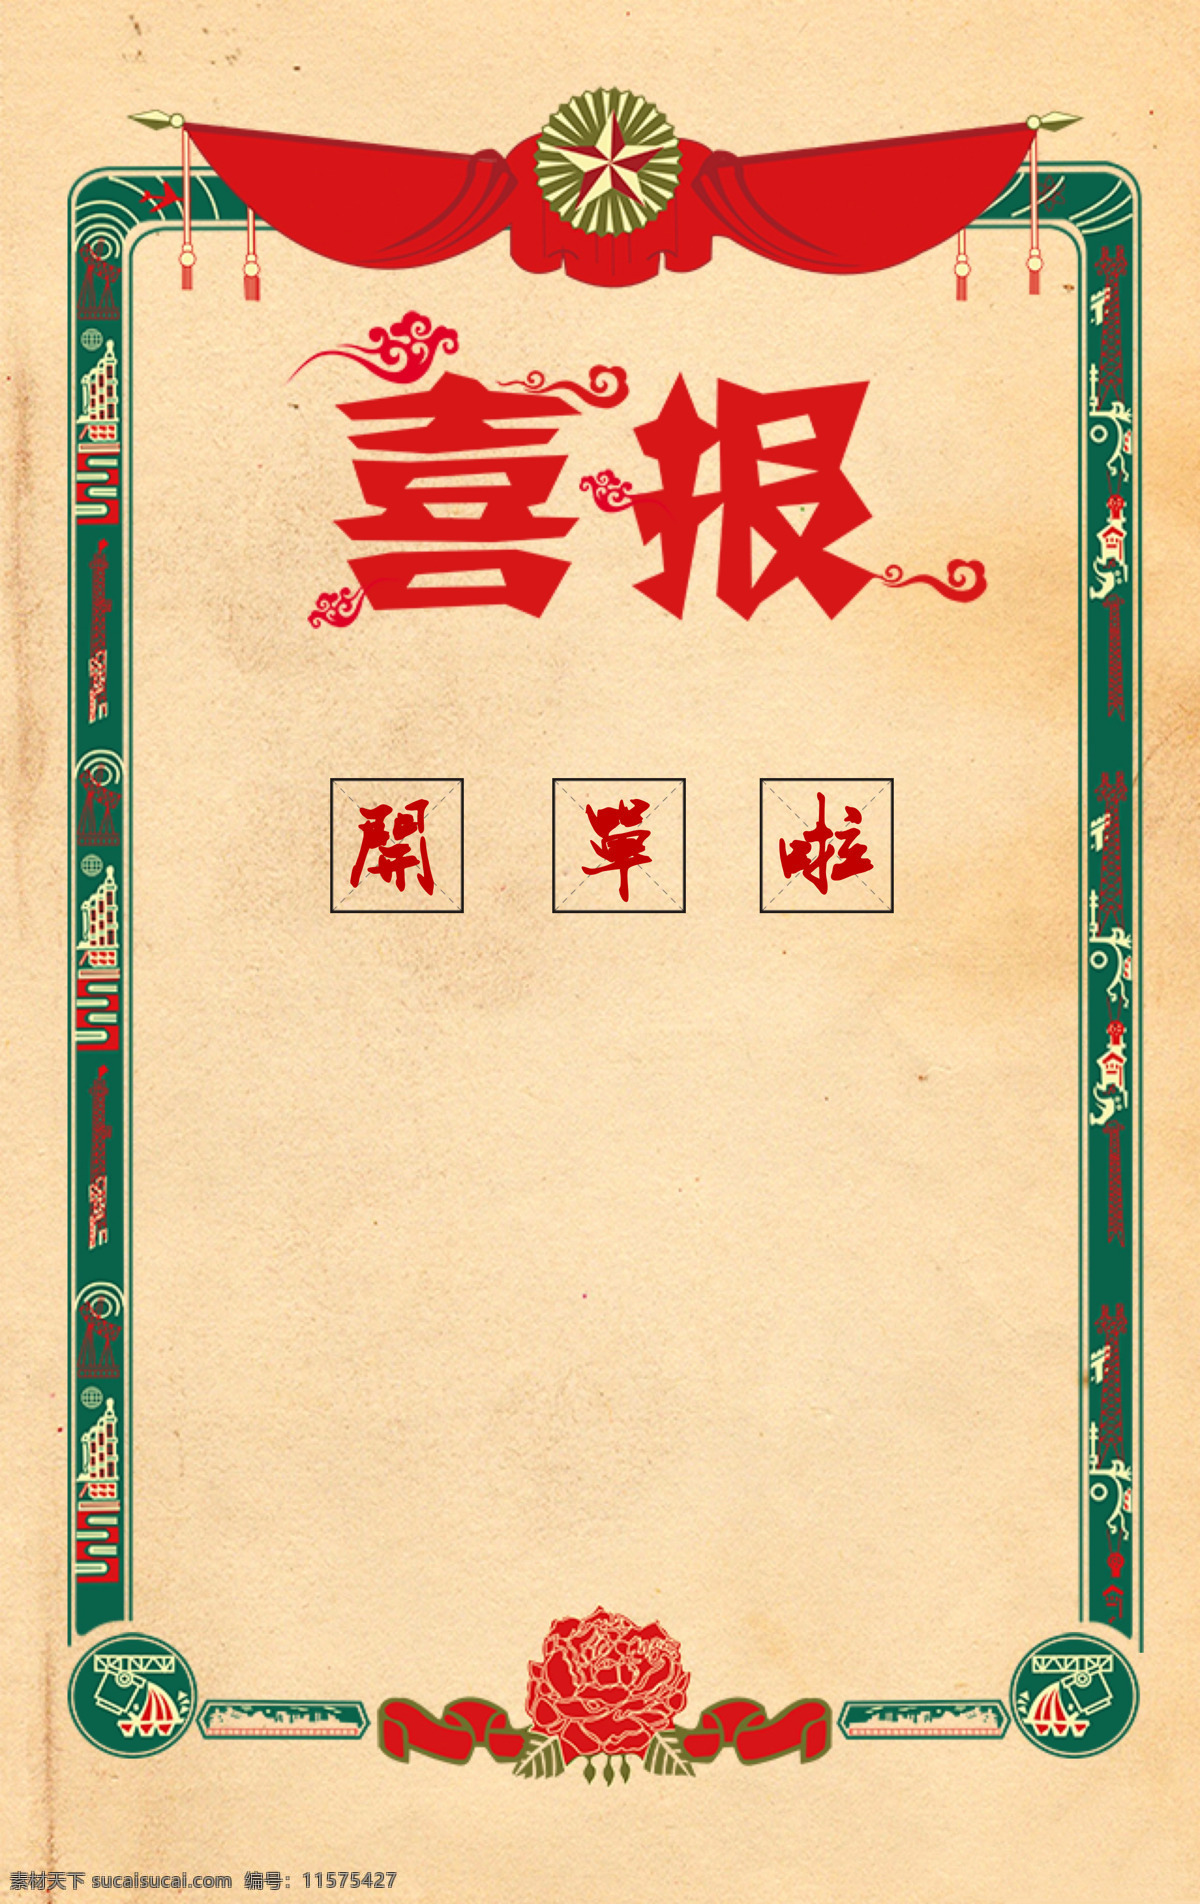 喜报
開 單 啦
素材天下 sucaisucai.com 编号：11575427